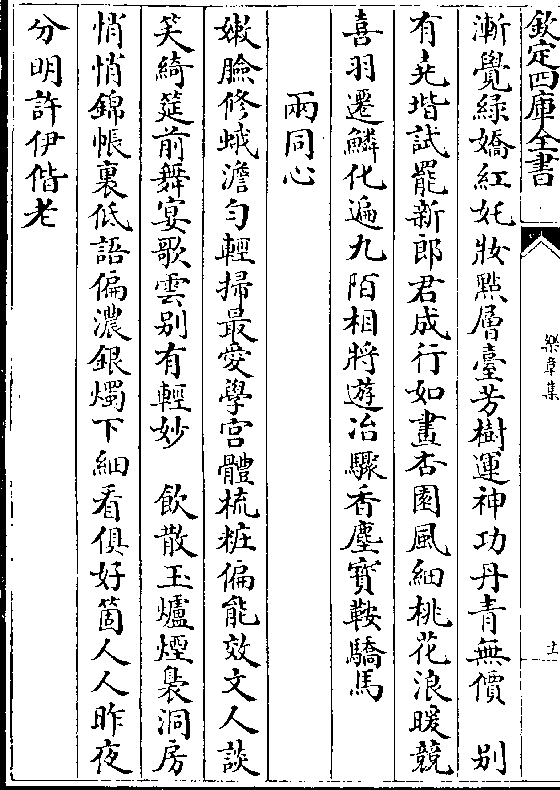 欽定四庫全書
樂章集
十一
漸覺綠嬌紅奼妝㸃層臺芳樹運神功丹青無價　别
有堯堦試罷新郎君成行如畫杏園風細桃花浪暖競
喜羽遷鱗化遍九陌相將遊冶驟香塵寳鞍驕馬
兩同心
嫩臉修蛾澹勻輕掃最愛學宮體梳粧偏能效文人談
笑綺筵前舞宴歌雲别有輕妙　飲散玉爐煙裊洞房
悄悄錦帳裏低語偏濃銀燭下細看俱好箇人人昨夜
分明許伊偕老